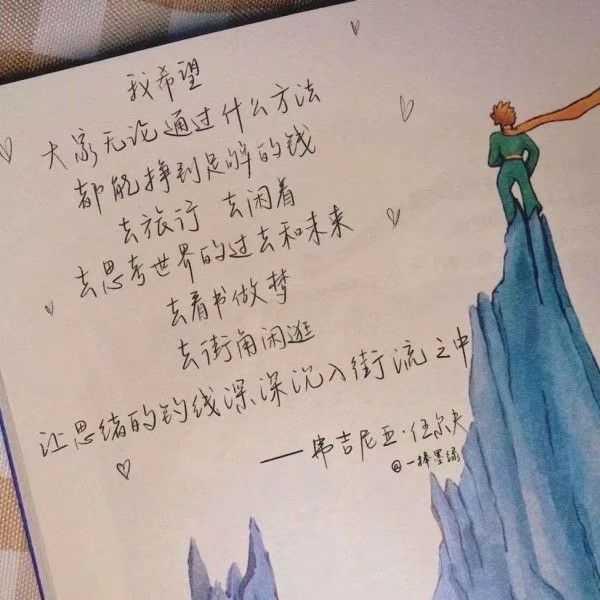 我希望
大家无论通过什么方法
都能挣到足够的钱
去旅行 去闲着
去思考世界的过去和未来
去看书做梦
去街角闲逛
让思绪的钓线深深沉入街流之中
——弗吉尼亚·伍尔夫
@一捧墨绿